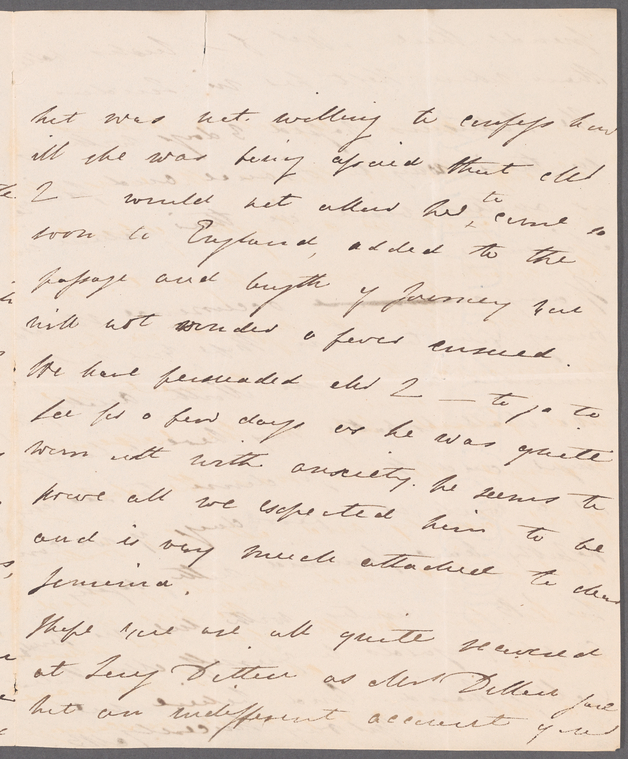 but was not willing to confess how
ill she was being afraid that Mr
L — would not allow her to come so
soon to England, added to the
passage and length of Journey you
will not wonder a fever ensued.
We have persuaded Mr L — to go to
for a few days as he was quite
worn out with anxiety. he seems to
prove all we expected him to be
and is very much attached to dear
Jemima.
I hope you are all quite recovered
at Long Ditton as Mrs Ditton gave
but an indifferent account of